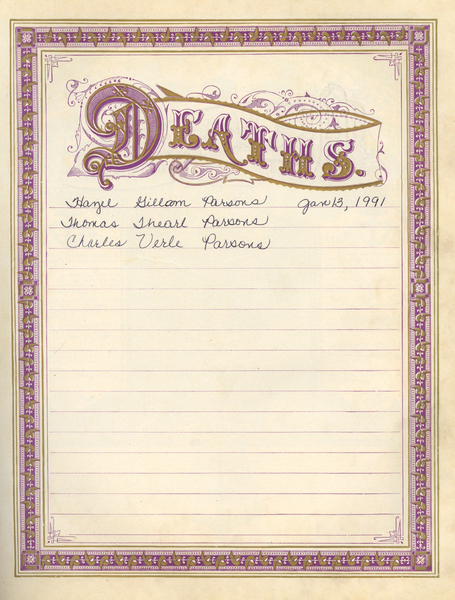 DEATHS.
Hazel Gillcom Parsons Jan 13, 1991
Thomas Thearl Parsons
Charles Verle Parsons